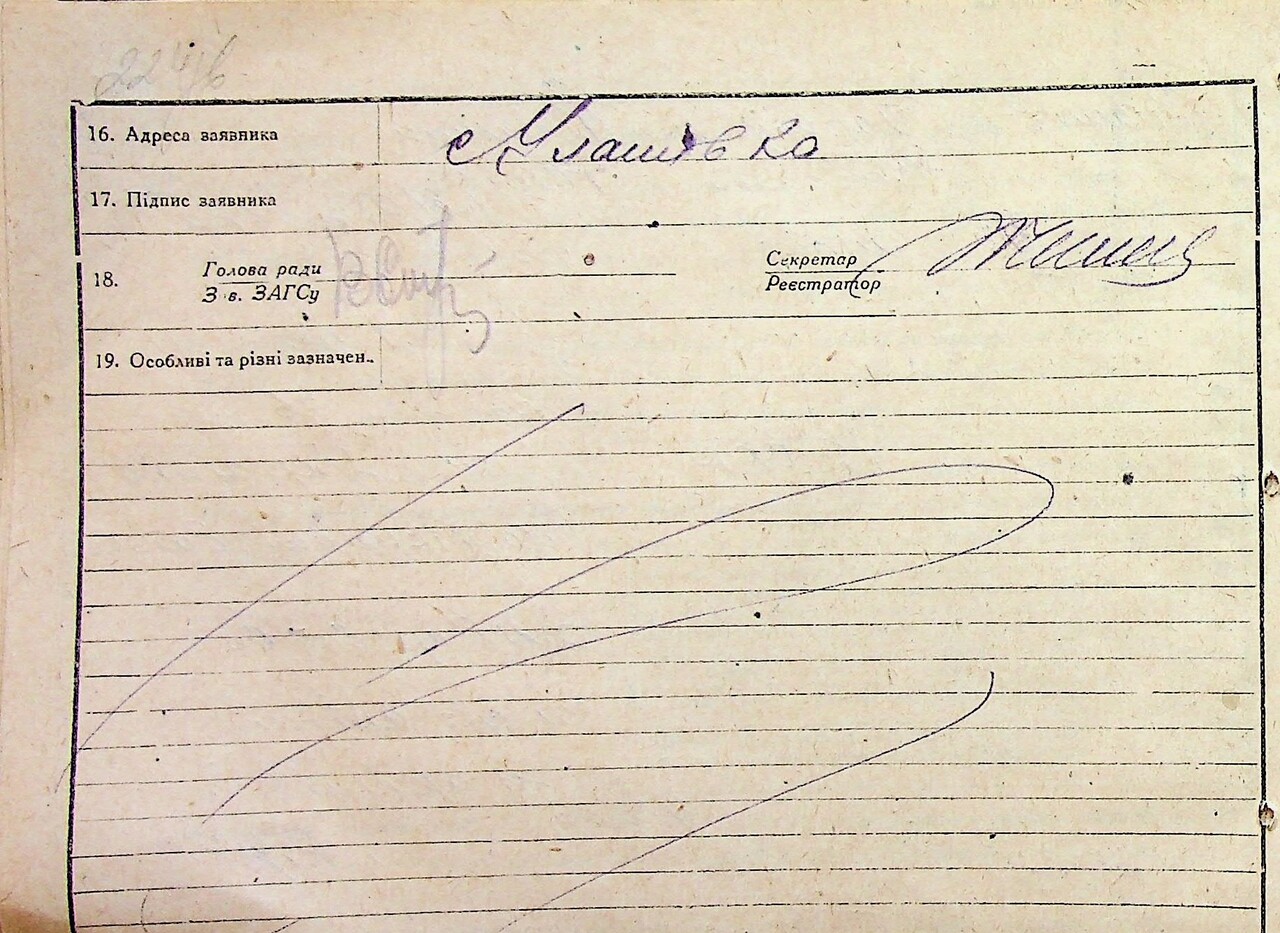 16. Адреса заявника с Уланівка
17. Підпис заявника
18. Голова ради Секретар
З в. ЗАГСу Реєстратор
19. Особливі та різні зазначен..